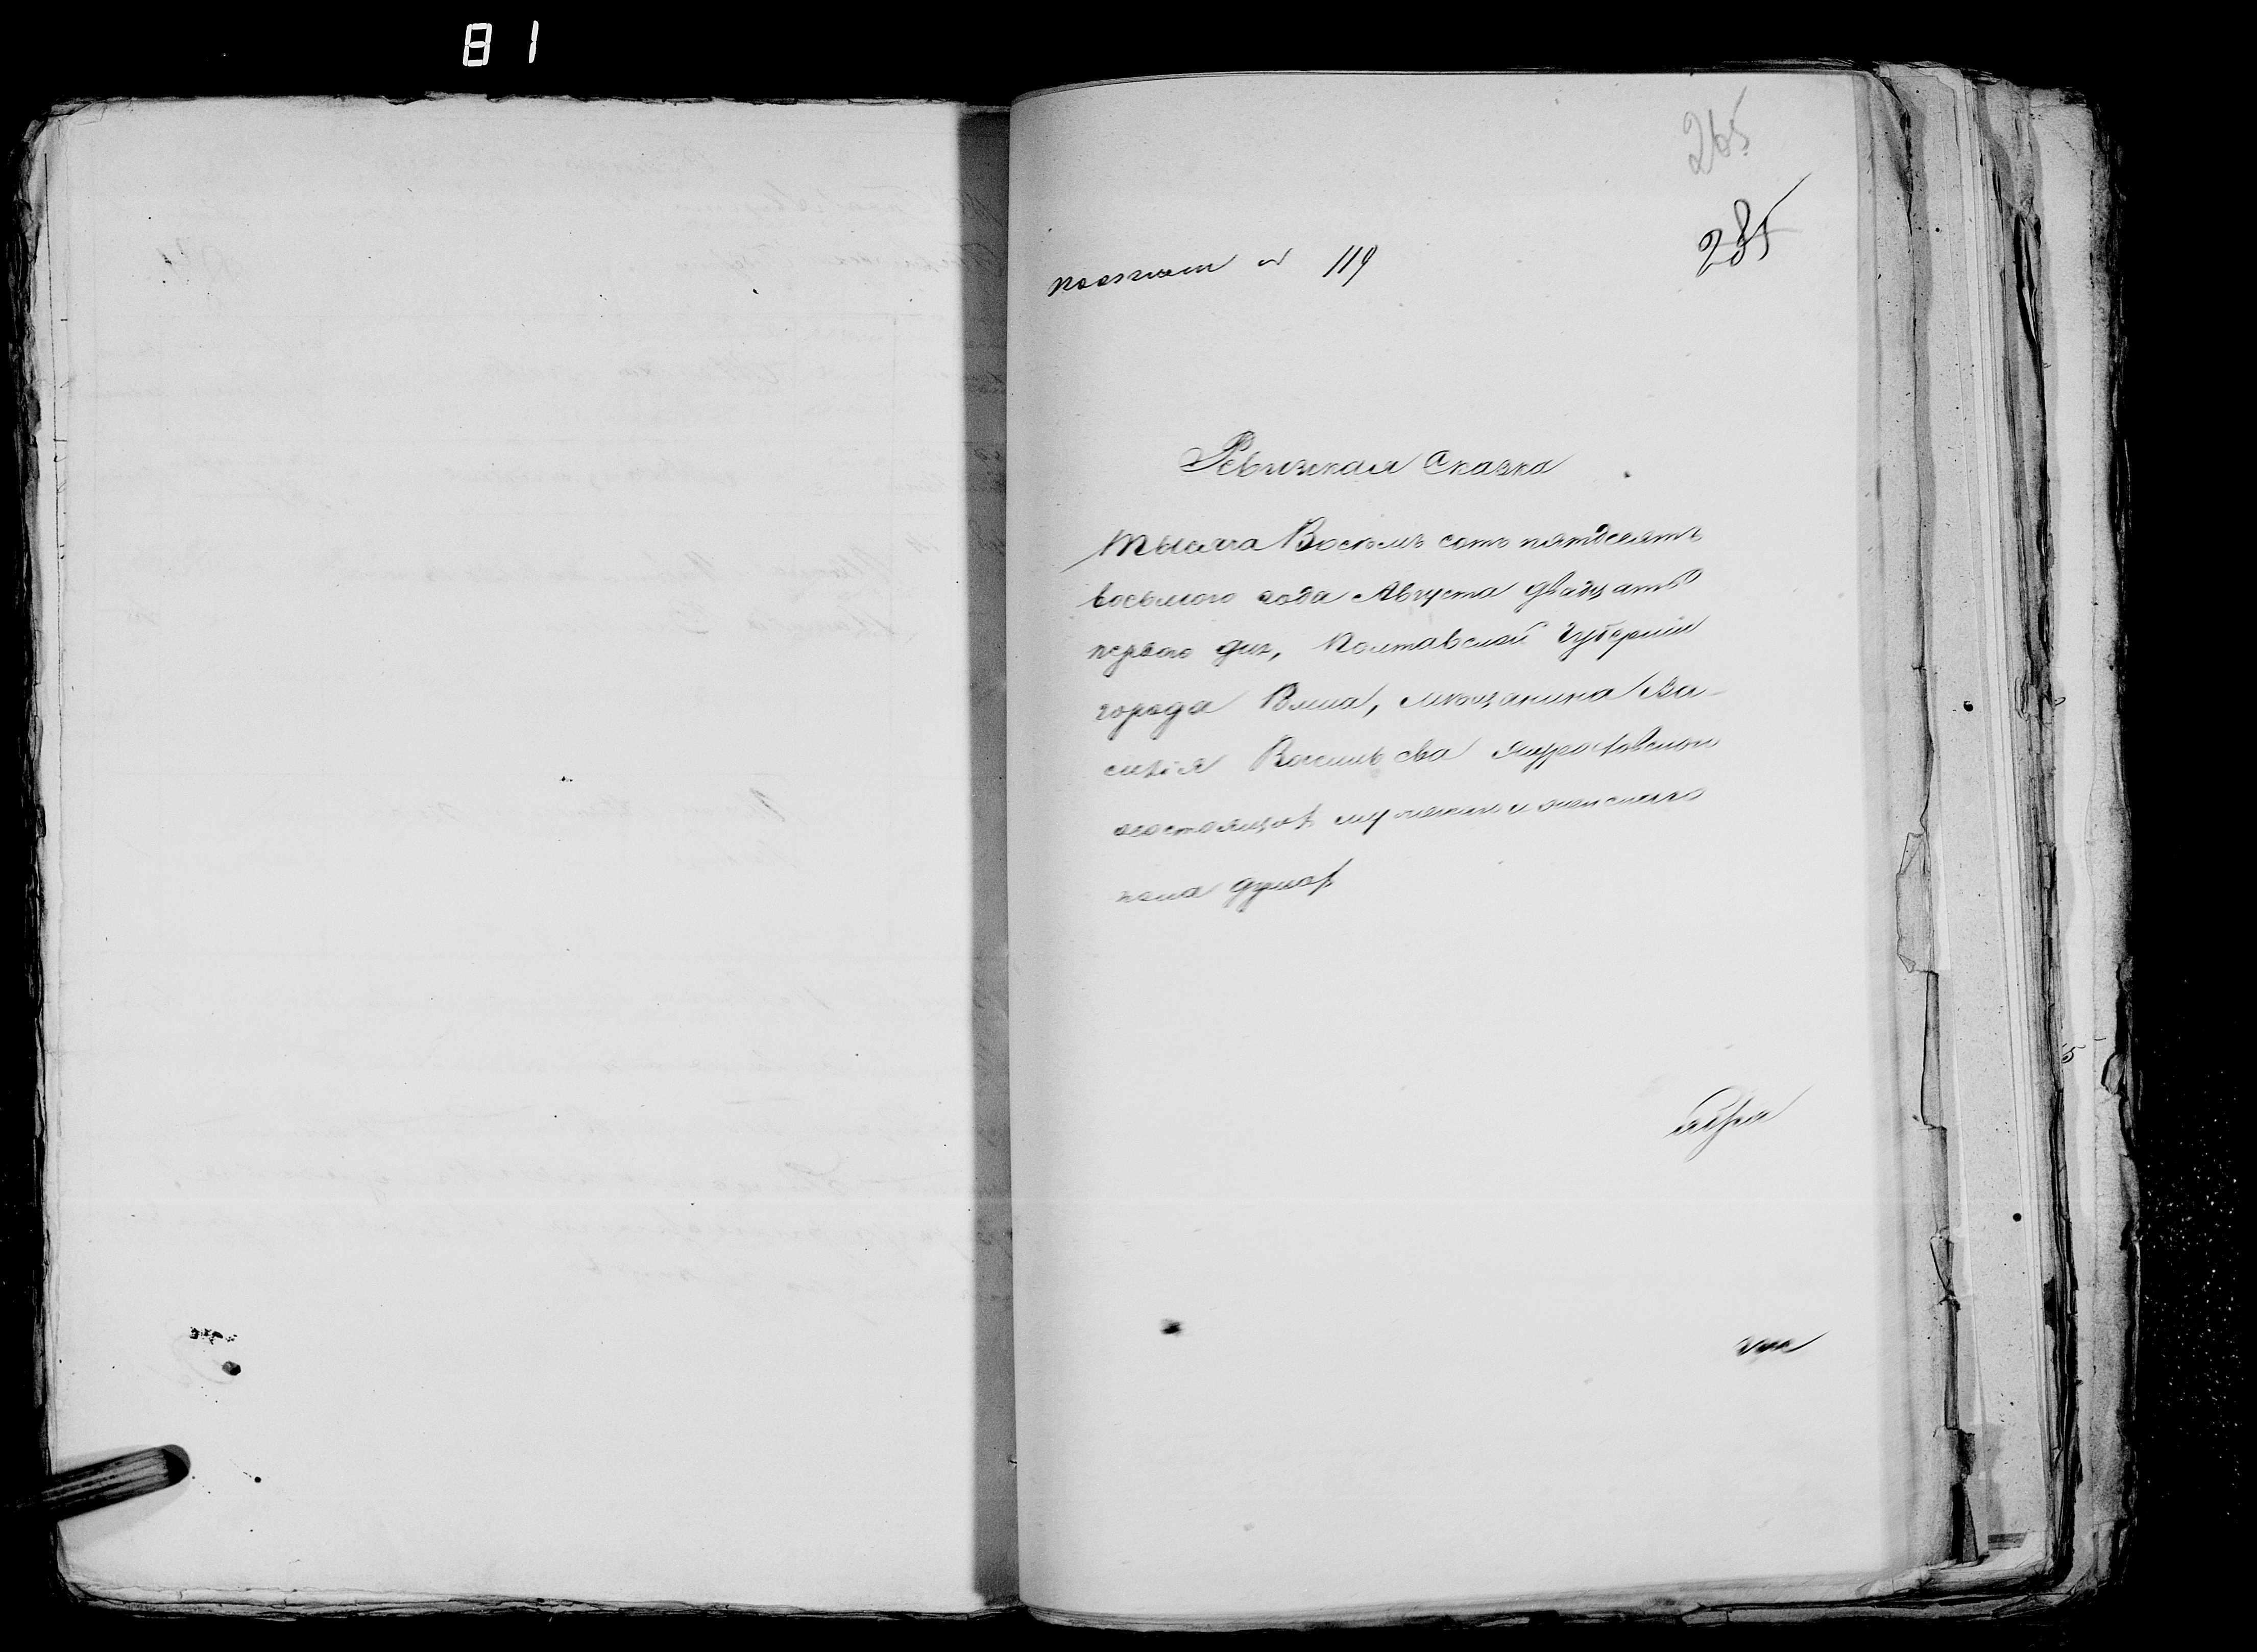 81
265
285
119
Ревизская Сказка
Тысяча Восемь сотъ пятдесятъ
восьмого года Августа двадцать
первого дня, Полтавской Губерніи
города, мещанина Ва-
силія Васильева
о состоящихъ мужеска и женскаго
пола душахъ